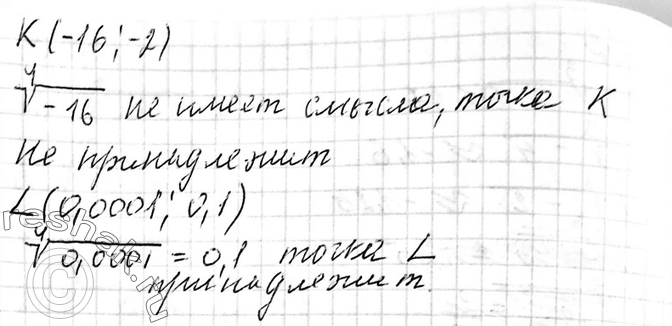 K(-16; -2)
∜-16 не имеет смысла, точка K
не принадлежит
L(0,0001; 0,1)
∜0,0001 = 0,1 точка L
принадлежит.
reshak.ru